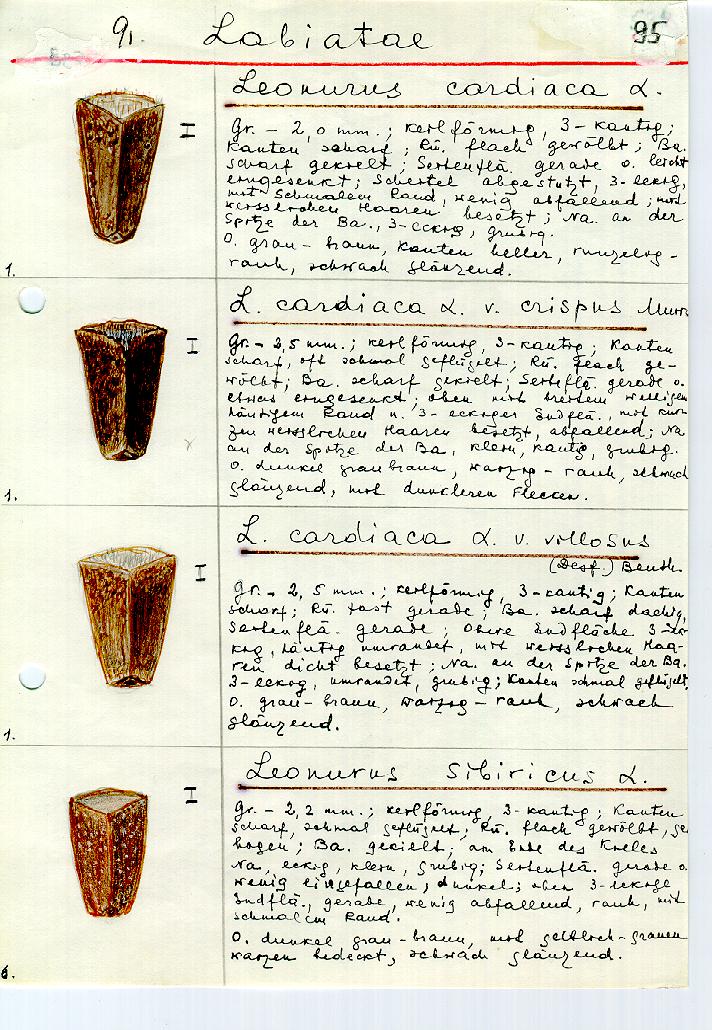 9. Labiatae 95
Leonurus cardiaca L.
Gr. - 2,0 mm.; keilförmig, 3-kantig;
Kanten scharf; Rü. flach gewölbt; Ba.
scharf gekielt; Seitenflä. gerade o. leicht
eingesenkt; Scheitel abgestutzt, 3-eckig,
mit schmalem Rand, wenig abfallend; mit
weisslichen Haaren besetzt; Na. an der
Spitze der Ba., 3-eckig, grubig.
O. grau-braun, Kanten heller, runzelig-
rauh, schwach glänzend.
1.
L. cardiaca L. v. crispus Murr
Gr. - 2,5 mm.; keilförmig, 3-kantig; Kanten
scharf, oft schmal geflügelt; Rü. flach ge-
wölbt; Ba. scharf gekielt; Seitenflä. gerade o.
etwas eingesenkt; oben mit breitem welligem
häutigem Rand u. 3-eckiger Endflä., mit kur-
zen weisslichen Haaren besetzt, abfallend; Na
an der Spitze der Ba, klein, kantig, grubig.
O. dunkel graubraun, warzig-rauh, schwach
glänzend, mit dunkleren Flecken.
1.
L. cardiaca L. v. villosus
(Desf.) Benth.
Gr. - 2,5 mm.; keilförmig, 3-kantig; Kanten
scharf; Rü. fast gerade; Ba. scharf dachig,
Seitenflä. gerade; Obere Endfläche 3-ec
kig, häutig umrandet, mit weisslichen Haa-
ren dicht besetzt; Na. an der Spitze der Ba.
3-eckig, umrandet, grubig; Kanten schmal geflügelt,
O. grau-braun, warzig-rauh, schwach
glänzend.
1.
Leonurus sibiricus L.
Gr. - 2,2 mm.; keilförmig, 3-kantig; Kanten
scharf, schmal geflügelt; Rü. flach gewölbt, ge
bogen; Ba. gekielt; am Ende des Kieles
Na, eckig, klein, grubig; Seitenflä. gerade o.
wenig eingefallen, dunkel; oben 3-eckige
Endflä., gerade, wenig abfallend, rauh, mit
schmalem Rand.
O. dunkel grau-braun, mit gelblich-grauen
Warzen bedeckt, schwach glänzend.